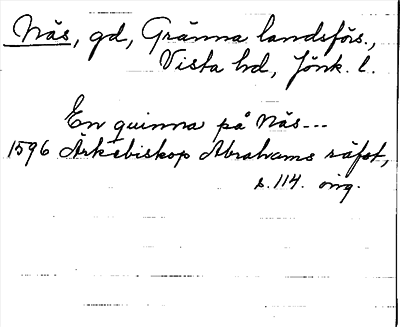 Näs, gd, Gränna landsförs.,
Vista hd, Jönk. l.
En quinna på Näs---
1596 Ärkebiskop Abrahams räfst,
s. 114. orig.